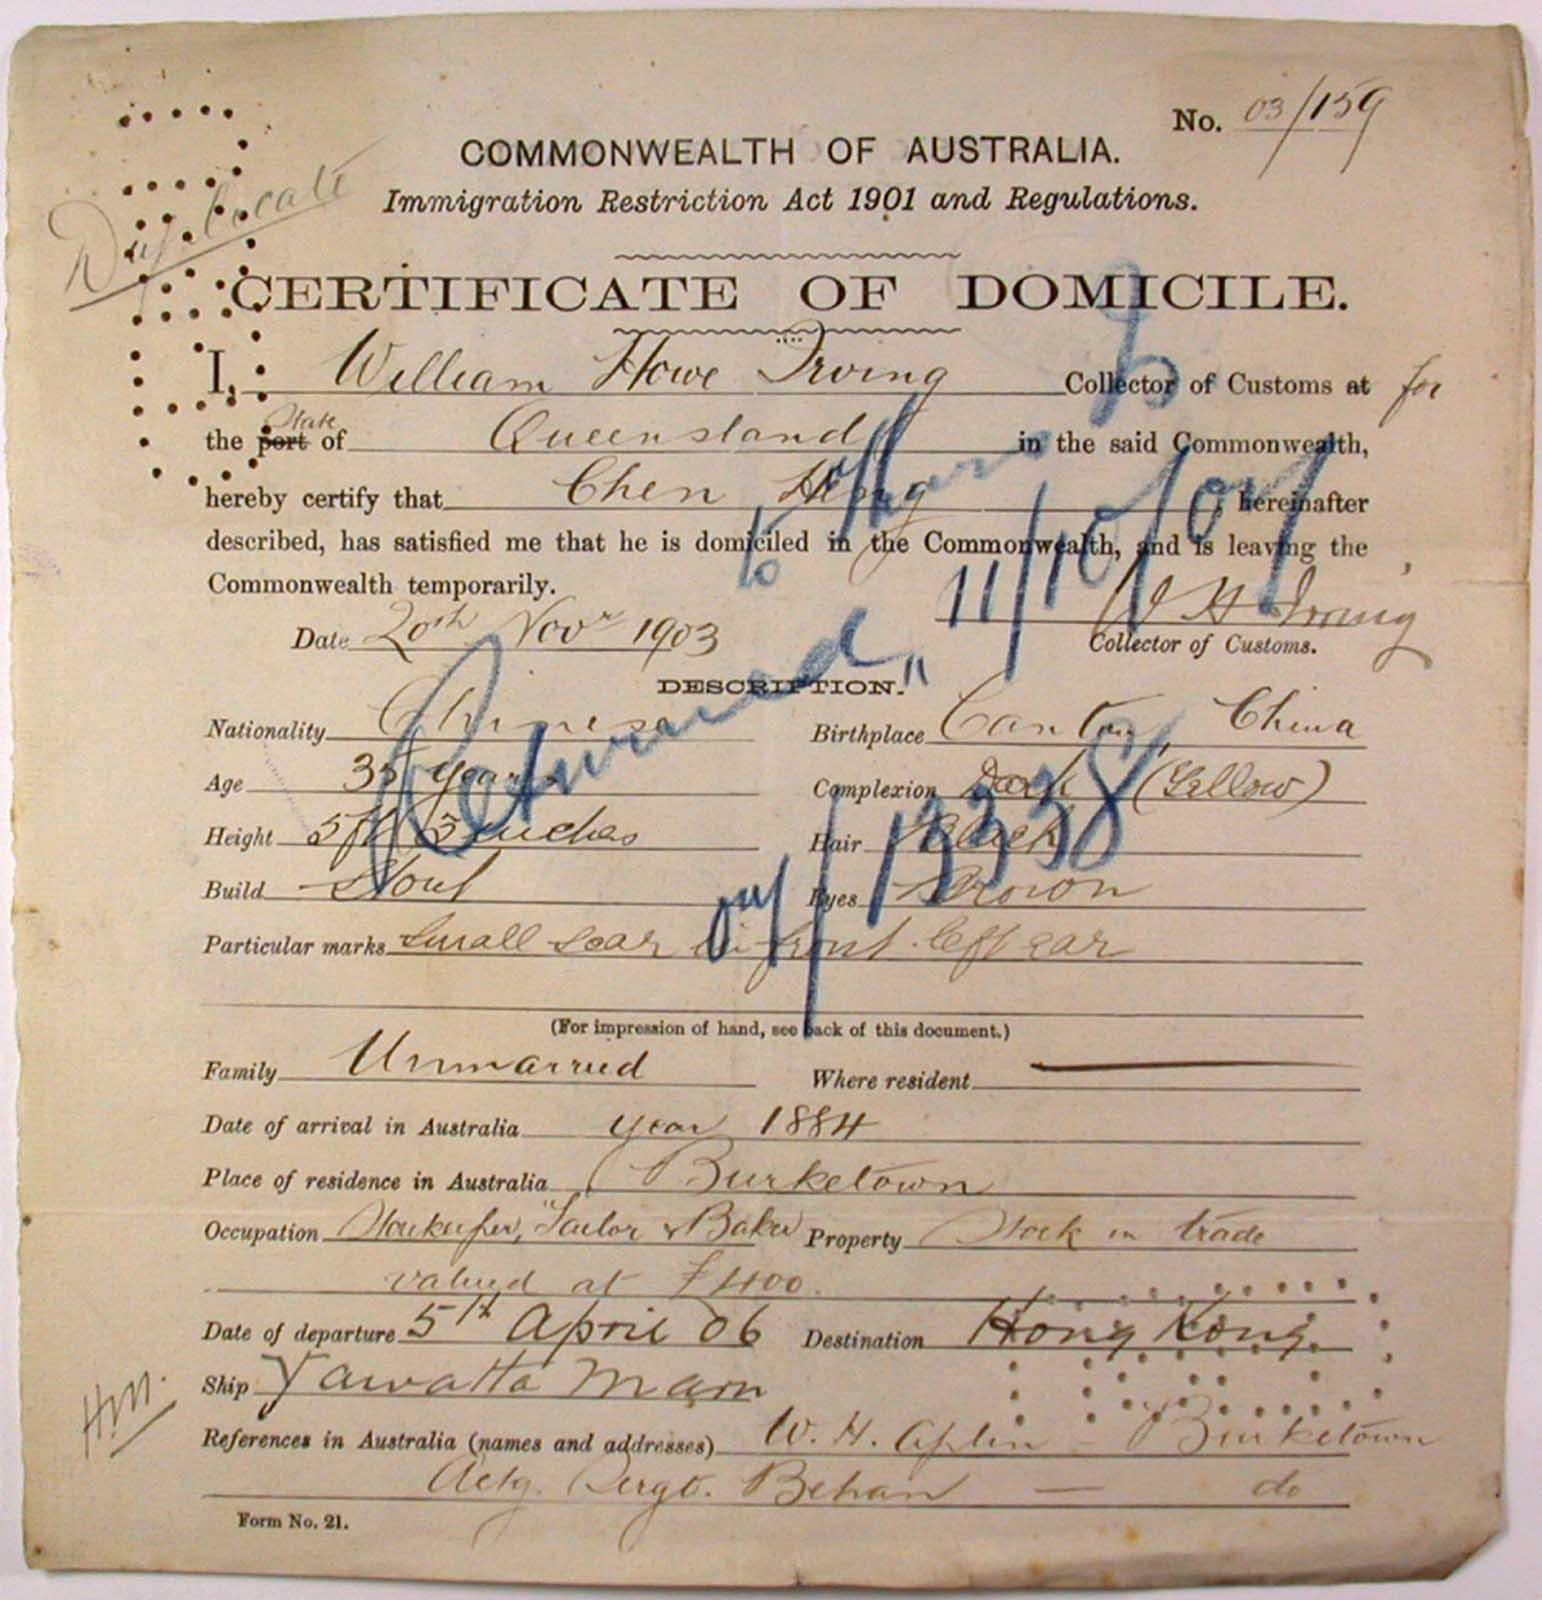 No. 03/159
Duplicate
COMMONWEALTH OF AUSTRALIA.
Immigration Restriction Act 1901 and Regulations.
CERTIFICATE OF DOMICILE.
I, William Howe Irving Collector of Customs at for
State
the port of Queensland in the said Commonwealth,
hereby certify that Chen Hing hereinafter
described, has satisfied me that he is domiciled in the Commonwealth, and is leaving the
Commonwealth temporarily.
11/10/07
W H Irving
Date 20th Novr 1903 Collector of Customs.
Returned
DESCRIPTION.
Nationality Chinese Birthplace Canton, China
Age 35 years Complexion Dark (Yellow)
Height 5 ft 3 inches Hair Black
07/13338
Build Stout Eyes Brown
Particular marks Small scar in front left ear
(For impression of hand, see back of this document.)
Family Unmarried Where resident
Date of arrival in Australia year 1884
Place of residence in Australia Burketown
Occupation Storekeeper, Tailor & Baker Property Stock in trade
valued at £400.
Date of departure 5th April 06 Destination Hong Kong
Ship Yawatta Maru
References in Australia (names and addresses) W. H. Aplin - Burketown
Actg. Sergt. Behan — do
Form No. 21.